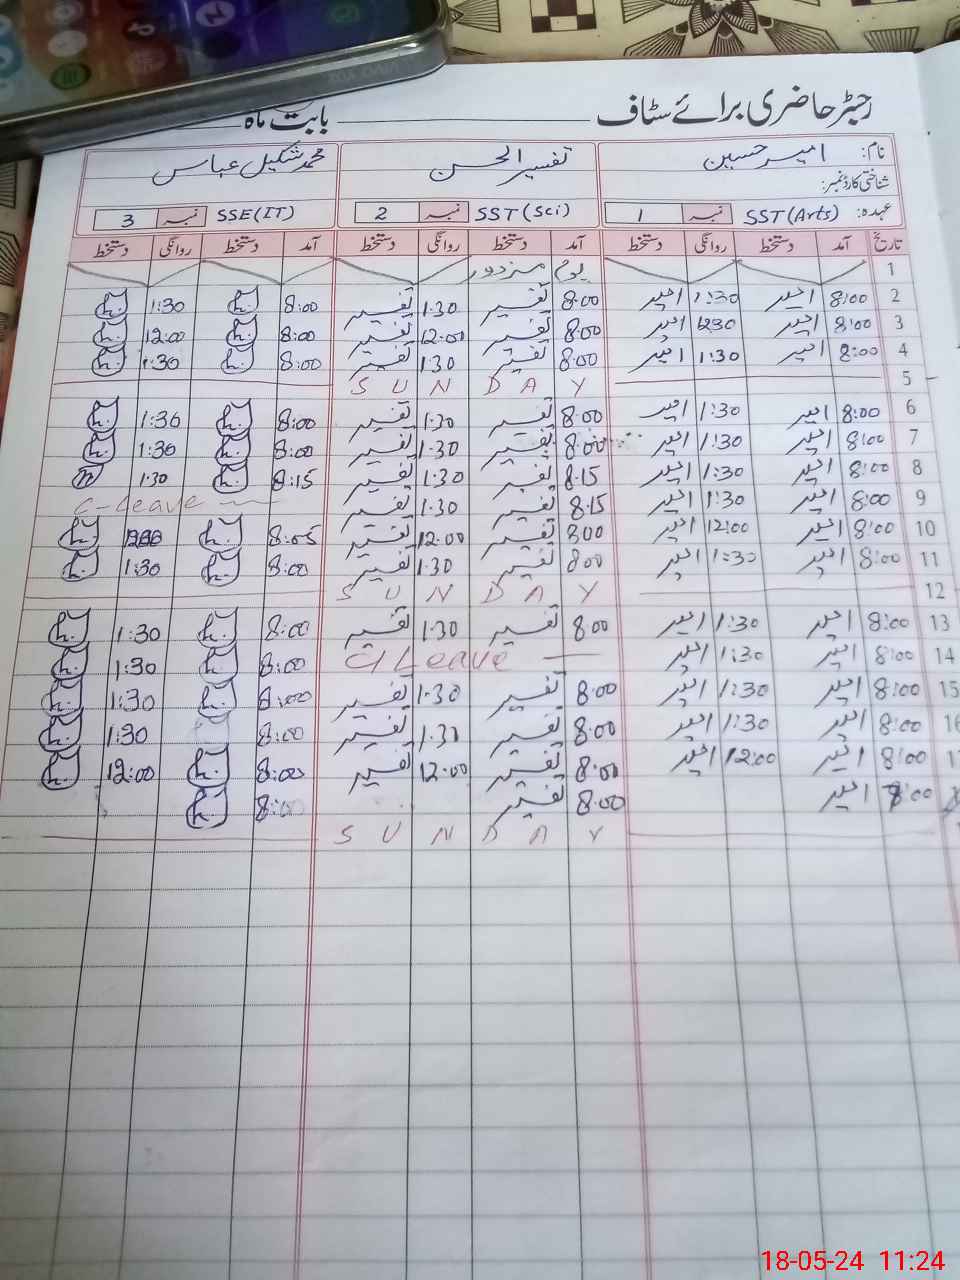 رجسٹر حاضری برائے سٹاف ـــــــ بابت ماہ
نام: امیر حسین تفسیر الحسن محمد شکیل عباس
شناختی کارڈ نمبر:
عہدہ: SST (Arts) نمبر 1 SST (Sci) نمبر 2 SSE (IT) نمبر 3
تاریخ آمد دستخط روانگی دستخط آمد دستخط روانگی دستخط آمد دستخط روانگی دستخط
1 یوم مزدور
2 8:00 امیر 1:30 امیر 8:00 تفسیر 1:30 تفسیر 8:00 h. 1:30 h.
3 8:00 امیر 1230 امیر 8:00 تفسیر 12:00 تفسیر 8:00 h. 12:00 h.
4 8:00 امیر 1:30 امیر 8:00 تفسیر 1:30 تفسیر 8:00 h. 1:30 h.
5 S U N D A Y
6 8:00 امیر 1:30 امیر 8:00 تفسیر 1:30 تفسیر 8:00 h. 1:30 h.
7 8:00 امیر 1:30 امیر 8:00 تفسیر 1:30 تفسیر 8:00 h. 1:30 h.
8 8:00 امیر 1:30 امیر 8.15 تفسیر 1:30 تفسیر 8:15 h. 1:30
9 8:00 امیر 1:30 امیر 8.15 تفسیر 1:30 تفسیر C-Leave
10 8:00 امیر 12:00 امیر 800 تفسیر 12.00 تفسیر 8:05 h. h.
11 8:00 امیر 1:30 امیر 800 تفسیر 1:30 تفسیر 8:00 h. 1:30 h.
12 S U N D A Y
13 8:00 امیر 1:30 امیر 8:00 تفسیر 1:30 تفسیر 8:00 h. 1:30 h.
14 8:00 امیر 1:30 امیر C/Leave 8:00 h. 1:30 h.
15 8:00 امیر 1:30 امیر 8:00 تفسیر 1:30 تفسیر 8:00 h. 1:30 h.
16 8:00 امیر 1:30 امیر 8:00 تفسیر 1:31 تفسیر 8:00 1:30 h.
8:00 امیر 12:00 امیر 8:00 تفسیر 12:00 تفسیر 8:00 h. 12:00 h.
8:00 امیر 8:00 تفسیر 8:00 h.
S U N D A Y
18-05-24 11:24